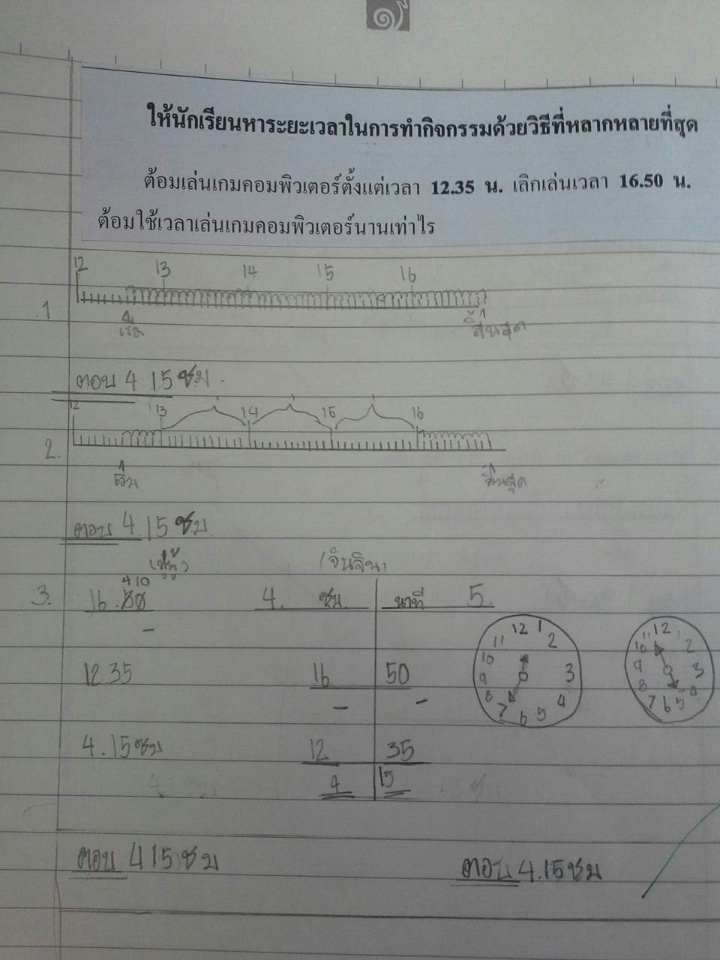 ๑
ให้นักเรียนหาระยะเวลาในการทำกิจกรรมด้วยวิธีที่หลากหลายที่สุด
ต้อมเล่นเกมคอมพิวเตอร์ตั้งแต่เวลา 12.35 น. เลิกเล่นเวลา 16.50 น.
ต้อมใช้เวลาเล่นเกมคอมพิวเตอร์นานเท่าไร
12 13 14 15 16
1
เริ่ม สิ้นสุด
ตอบ 4 15 ชม.
12 13 14 15 16
2.
เริ่ม สิ้นสุด
ตอบ 4.15 ชม
(จินจิน)
4 10
3. 16.50 4. ชม นาที 5.
12 1 2 3 4 5 6 7 8 9 10 11
12 1 2 3 4 5 6 7 8 9 10 11
-
12 35 16 50
- -
4.15 ชม 12 35
4 15
ตอบ 4 15 ชม ตอบ 4.15 ชม